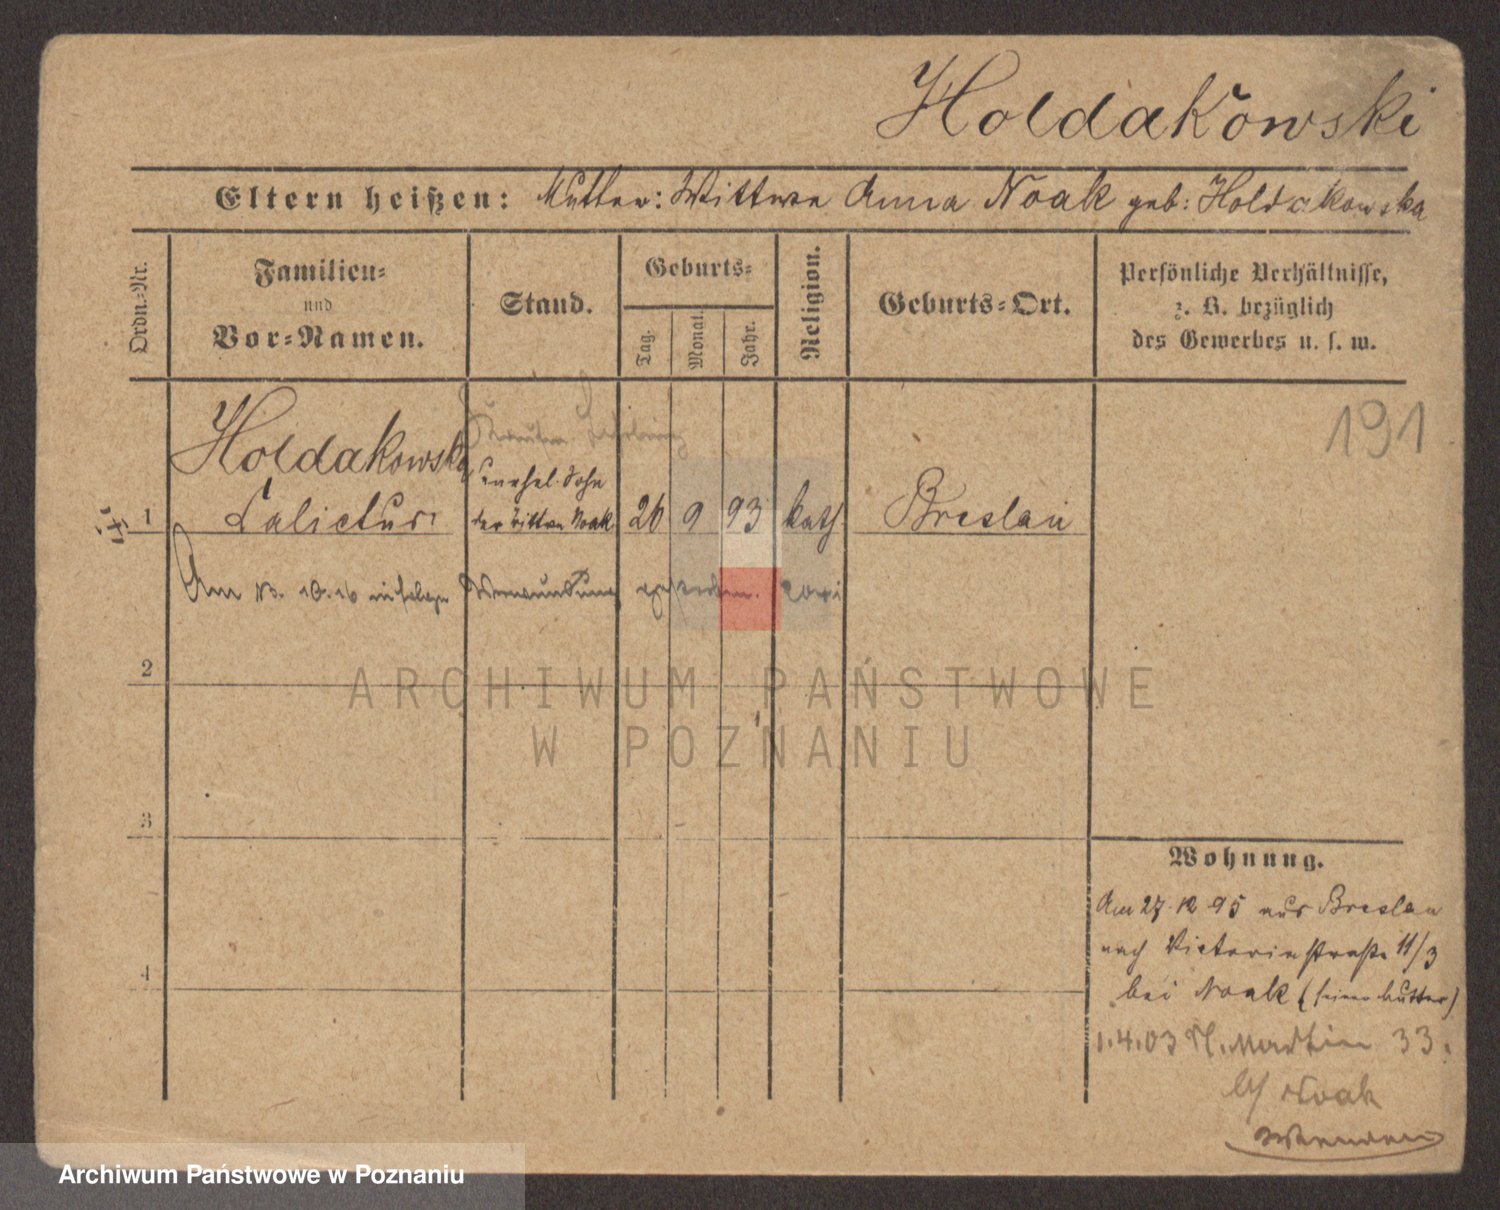 Holdakowski
Eltern heißen: Mutter: Wittwe Anna Noak geb: Holdakowska
Ordn.=Nr.
Familien=
und
Vor=Namen.
Stand.
Geburts=
Tag.
Monat.
Jahr.
Religion.
Geburts=Ort.
Persönliche Verhältnisse,
z. B. bezüglich
des Gewerbes u. s. w.
191
Holdakowski
unehel. Sohn
1 Calictus der Wittwe Noak 26 9 93 kath. Breslau
Am 10.16 infolge Verwundung gestorben.
2
3
4
Wohnung.
Am 27.12 95 aus Breslau
nach Victoriastraße 11/3
bei Noak (seiner Mutter)
1.4.03 St. Martin 33.
b/ Noak
Wenden
ARCHIWUM PAŃSTWOWE
W POZNANIU
Archiwum Państwowe w Poznaniu